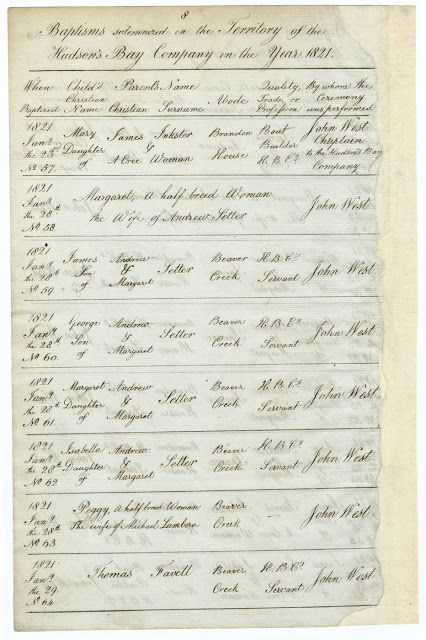 8
Baptisms solemnized in the Territory of the
Hudson's Bay Company in the Year 1821.
When Child's Parent's Name Quality, By whom the
Christian Abode Trade, or Ceremony
Baptized Name Christian Surname Profession was performed
1821 Mary James Inkster Brandon Boat John West
Jany. Builder Chaplain
the 25th Daughter & House to the Hudson's Bay
No 57. of A Cree Woman H. B. Cy. Company
1821
Jany. Margaret, a half breed Woman
the 28th the Wife of Andrew Setter John West
No 58.
1821
Jany. James Andrew Beaver H. B. Cy.
the 28th Son & Setter John West
No 59. of Margaret Creek Servant
1821
Jany. George Andrew Beaver H. B. Cy.
the 28th Son & Setter John West
No 60. of Margaret Creek Servant
1821
Jany. Margaret Andrew Beaver H. B. Cy.
the 28th Daughter & Setter John West
No 61. of Margaret Creek Servant
1821
Jany. Isabella Andrew Beaver H. B. Cy.
the 28th Daughter & Setter Creek Servant John West
No 62 of Margaret
1821
Jany. Peggy, a half breed Woman Beaver
the 28th The wife of Michael Lambora Creek — John West
No 63
1821
Jany. Thomas Favell Beaver H. B. Cy.
the 29. Creek Servant John West
No 64.